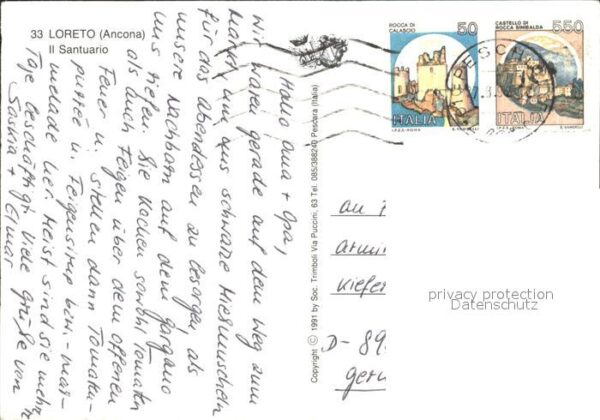 33 LORETO (Ancona)
Il Santuario
Hallo Oma + Opa,
Wir waren gerade auf dem Weg zum
Markt um uns schwarze Miesmuscheln
für das Abendessen zu besorgen als
unsere Nachbarn auf dem Gargano
uns riefen. Sie kochen sowohl Tomaten
als auch Feigen über dem offenen
Feuer u. stellen dann Tomaten-
purrée u. Feigensirup bzw. -mar-
melade her. Meist sind sie mehrere
Tage beschäftigt. Viele Grüße von
Saskia + Elmar
Copyright © 1991 by Soc. Trimboli Via Puccini, 63 Tel. 085/388240 Pescara (Italia)
ROCCA DI
CALASCIO
50
ITALIA
I.P.Z.S.-ROMA
CASTELLO DI
ROCCA SINIBALDA
550
ITALIA
I.P.Z.S.-ROMA
PESCHI
An
Armin
Kiefer
D-89
Germ
privacy protection
Datenschutz